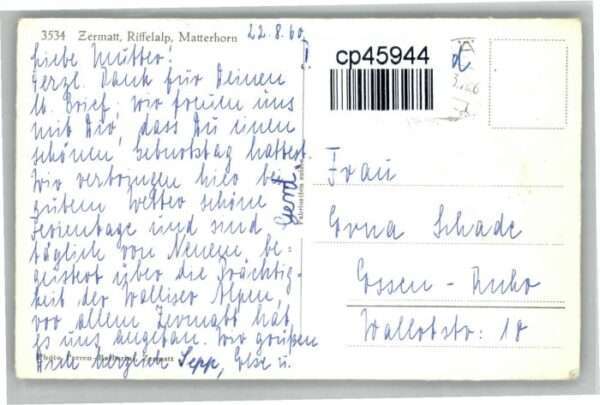 3534 Zermatt, Riffelalp, Matterhorn
22.8.60
Liebe Mutter!
Herzl. Dank für Deinen
lb. Brief; wir freuen uns
mit Dir, dass Du einen
schönen Geburtstag hattest.
Wir verbringen hier bei
gutem Wetter schöne
Ferientage und sind
täglich von Neuem be-
geistert über die Prächtig-
keit der Walliser Alpen,
vor allem Zermatt hat
es uns angetan. Wir grüßen
Dich herzlich Sepp, Else u.
Gerd.
cp45944
Frau
Erna Schade
Essen-Ruhr
Wallotstr: 18